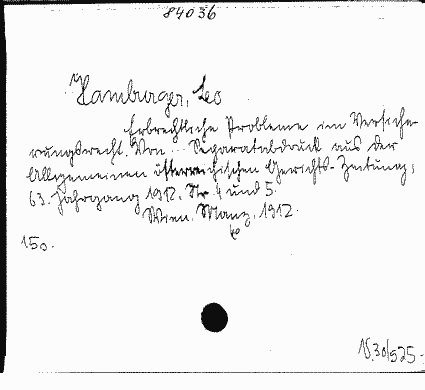 84036
Hamburger, Leo
Erbrechtliche Probleme im Versiche-
rungsrecht. Von ... Separatabdruck aus der
Allgemeinen österreichischen Gerichts-Zeitung,
63. Jahrgang 1912. Nr. 4 und 5.
Wien, Manz, 1912.
150.
V.30/525.